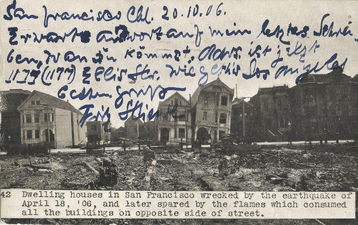 San Francisco Cal. 20.10.06.
Erwarte Antwort auf mein letztes Schrei-
ben, wan Du kommst, Adrs ist jetzt
1179 (1179) Ellis Str. wie geht's Los Angeles
besten Gruss
42 Dwelling houses in San Francisco wrecked by the earthquake of
April 18, '06, and later spared by the flames which consumed
all the buildings on opposite side of street.